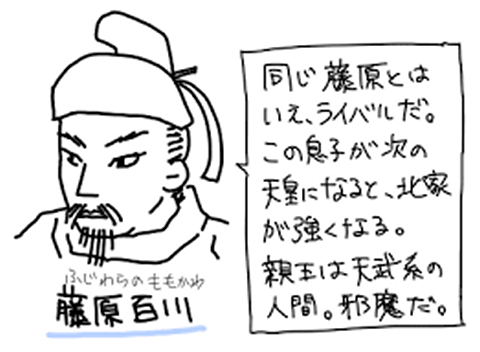 同じ藤原とは
いえ、ライバルだ。
この息子が次の
天皇になると、北家
が強くなる。
親王は天武系の
人間。邪魔だ。
ふじわらのももかわ
藤原百川